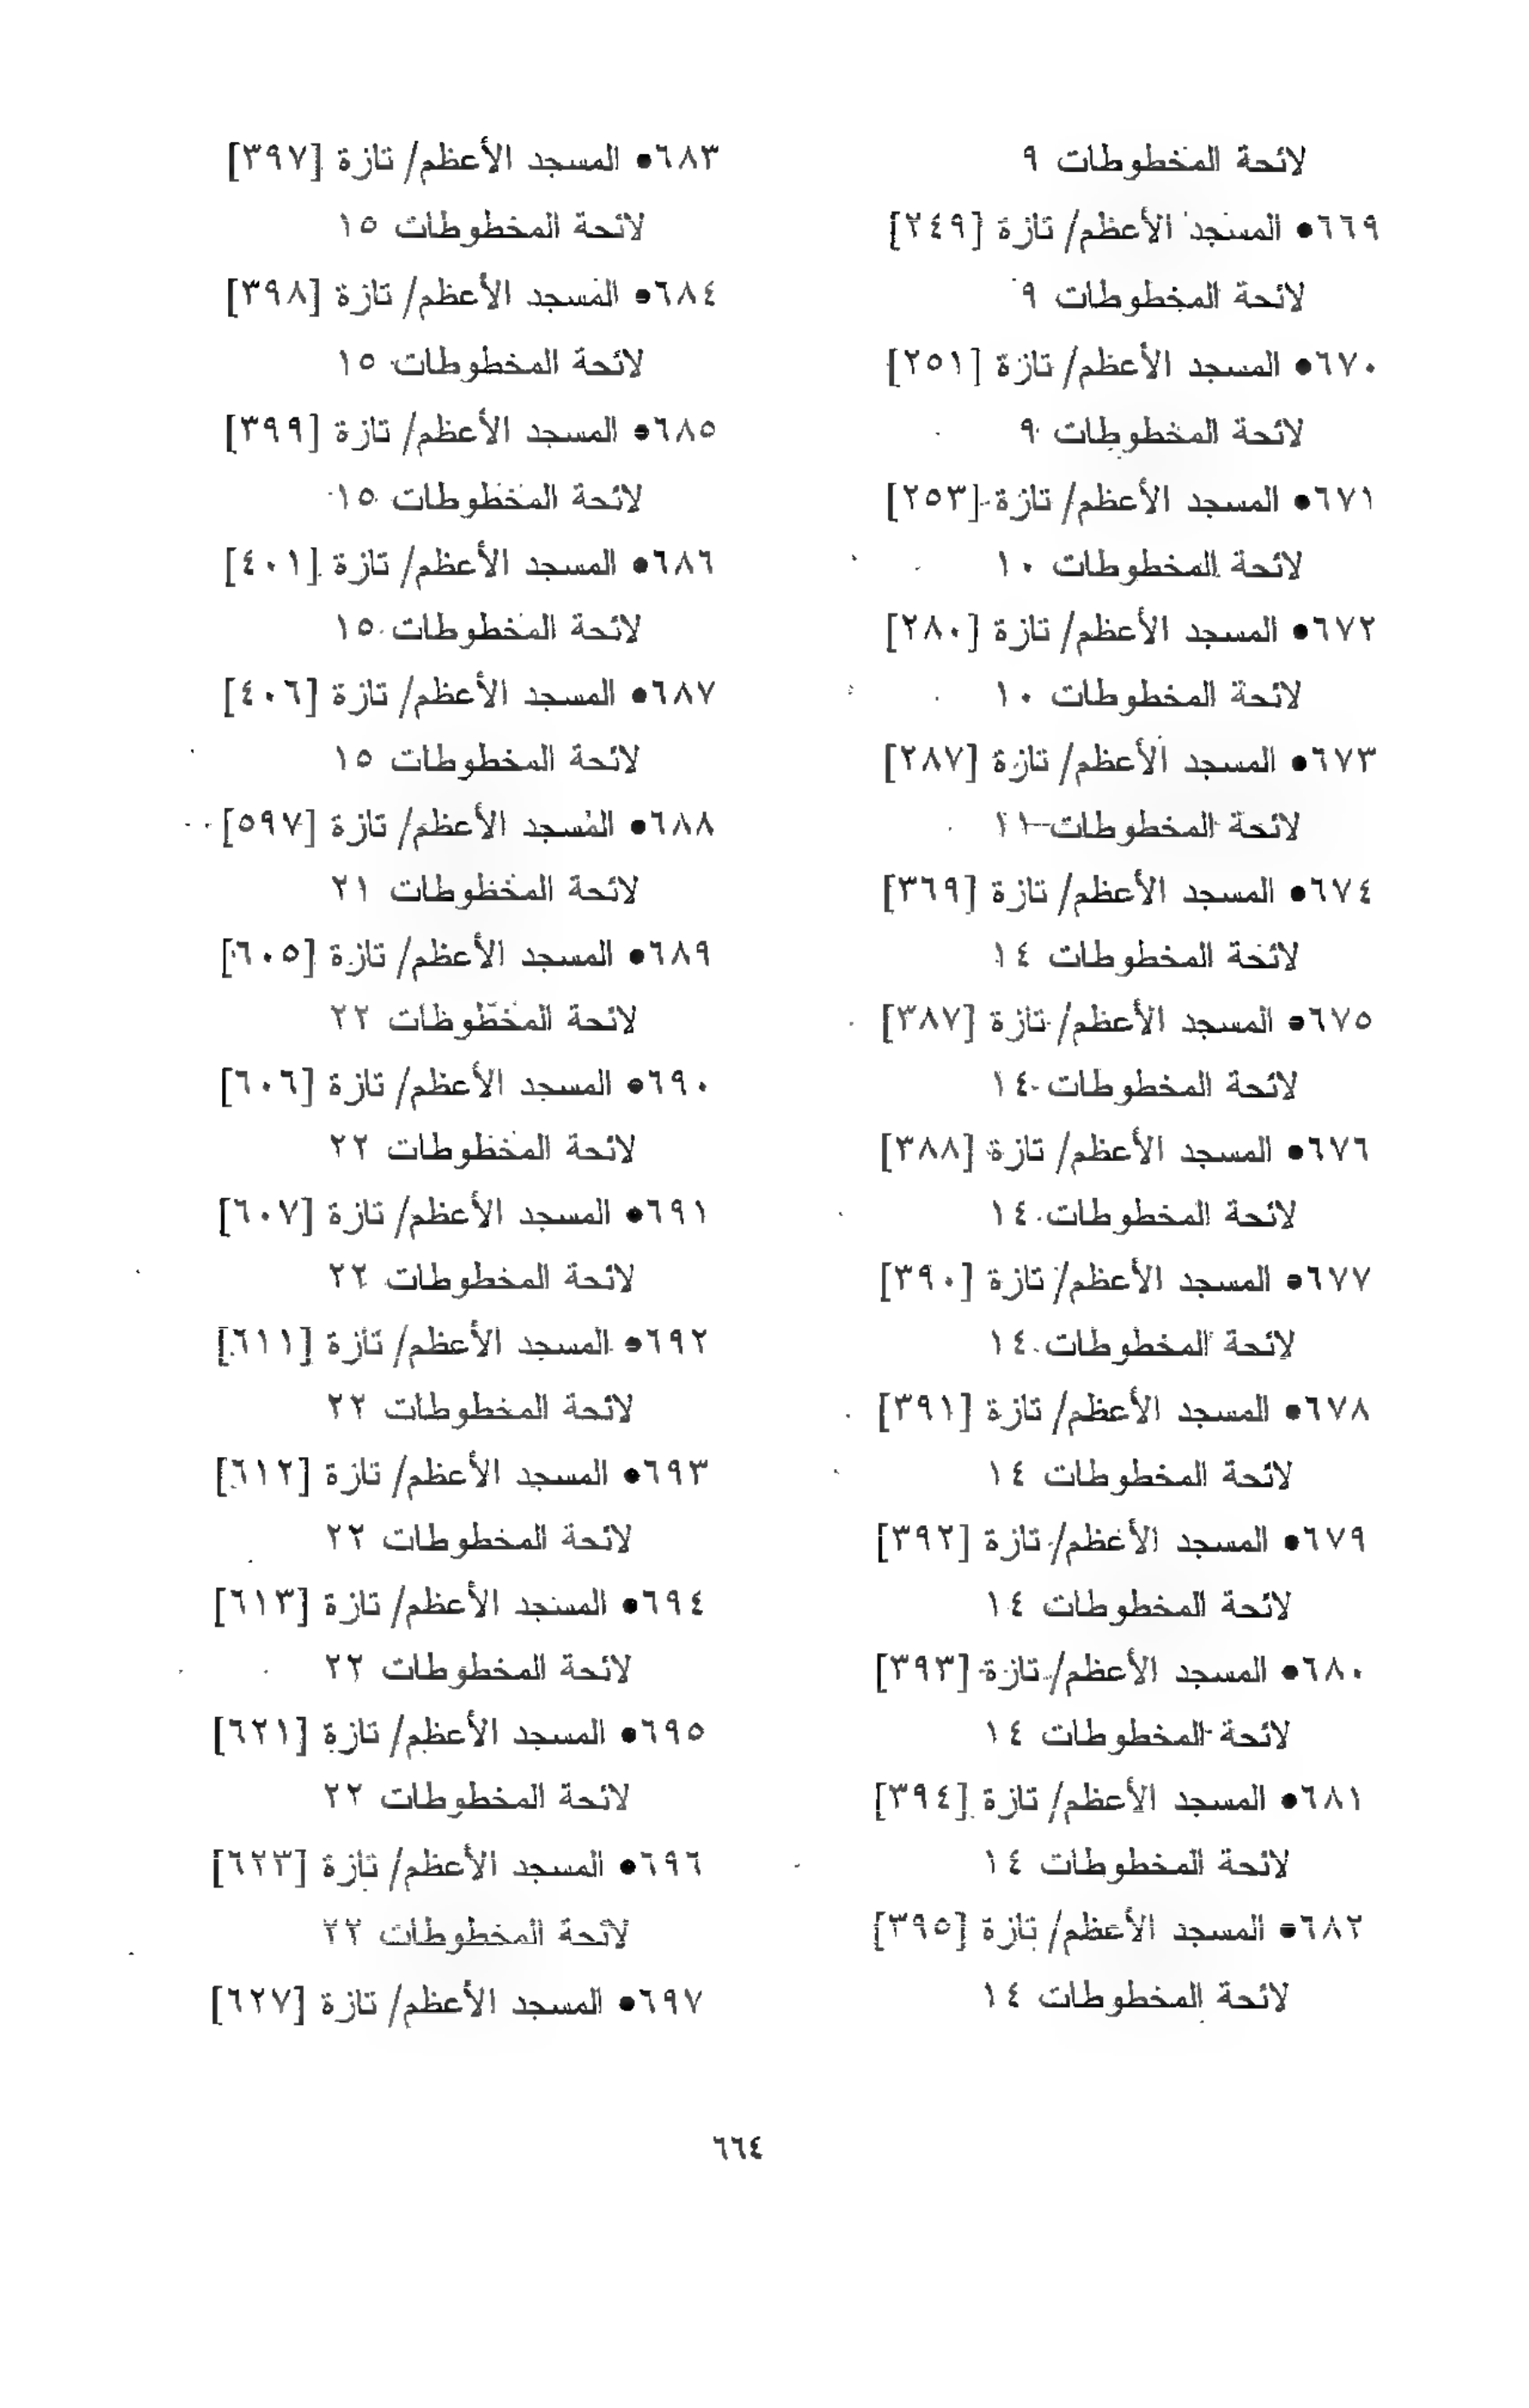 لائحة المخطوطات ٩
٦٦٩● المسجد الأعظم/ تازة [٢٤٩]
لائحة المخطوطات ٩
٦٧٠● المسجد الأعظم/ تازة [٢٥١]
لائحة المخطوطات ٩
٦٧١● المسجد الأعظم/ تازة [٢٥٣]
لائحة المخطوطات ١٠
٦٧٢● المسجد الأعظم/ تازة [٢٨٠]
لائحة المخطوطات ١٠
٦٧٣● المسجد الأعظم/ تازة [٢٨٧]
لائحة المخطوطات ١١
٦٧٤● المسجد الأعظم/ تازة [٣٦٩]
لائحة المخطوطات ١٤
٦٧٥● المسجد الأعظم/ تازة [٣٨٧]
لائحة المخطوطات ١٤
٦٧٦● المسجد الأعظم/ تازة [٣٨٨]
لائحة المخطوطات ١٤
٦٧٧● المسجد الأعظم/ تازة [٣٩٠]
لائحة المخطوطات ١٤
٦٧٨● المسجد الأعظم/ تازة [٣٩١]
لائحة المخطوطات ١٤
٦٧٩● المسجد الأعظم/ تازة [٣٩٢]
لائحة المخطوطات ١٤
٦٨٠● المسجد الأعظم/ تازة [٣٩٣]
لائحة المخطوطات ١٤
٦٨١● المسجد الأعظم/ تازة [٣٩٤]
لائحة المخطوطات ١٤
٦٨٢● المسجد الأعظم/ تازة [٣٩٥]
لائحة المخطوطات ١٤
٦٨٣● المسجد الأعظم/ تازة [٣٩٧]
لائحة المخطوطات ١٥
٦٨٤● المسجد الأعظم/ تازة [٣٩٨]
لائحة المخطوطات ١٥
٦٨٥● المسجد الأعظم/ تازة [٣٩٩]
لائحة المخطوطات ١٥
٦٨٦● المسجد الأعظم/ تازة [٤٠١]
لائحة المخطوطات ١٥
٦٨٧● المسجد الأعظم/ تازة [٤٠٦]
لائحة المخطوطات ١٥
٦٨٨● المسجد الأعظم/ تازة [٥٩٧]
لائحة المخطوطات ٢١
٦٨٩● المسجد الأعظم/ تازة [٦٠٥]
لائحة المخطوطات ٢٢
٦٩٠● المسجد الأعظم/ تازة [٦٠٦]
لائحة المخطوطات ٢٢
٦٩١● المسجد الأعظم/ تازة [٦٠٧]
لائحة المخطوطات ٢٢
٦٩٢● المسجد الأعظم/ تازة [٦١١]
لائحة المخطوطات ٢٢
٦٩٣● المسجد الأعظم/ تازة [٦١٢]
لائحة المخطوطات ٢٢
٦٩٤● المسجد الأعظم/ تازة [٦١٣]
لائحة المخطوطات ٢٢
٦٩٥● المسجد الأعظم/ تازة [٦٢١]
لائحة المخطوطات ٢٢
٦٩٦● المسجد الأعظم/ تازة [٦٢٣]
لائحة المخطوطات ٢٢
٦٩٧● المسجد الأعظم/ تازة [٦٢٧]
٦٦٤